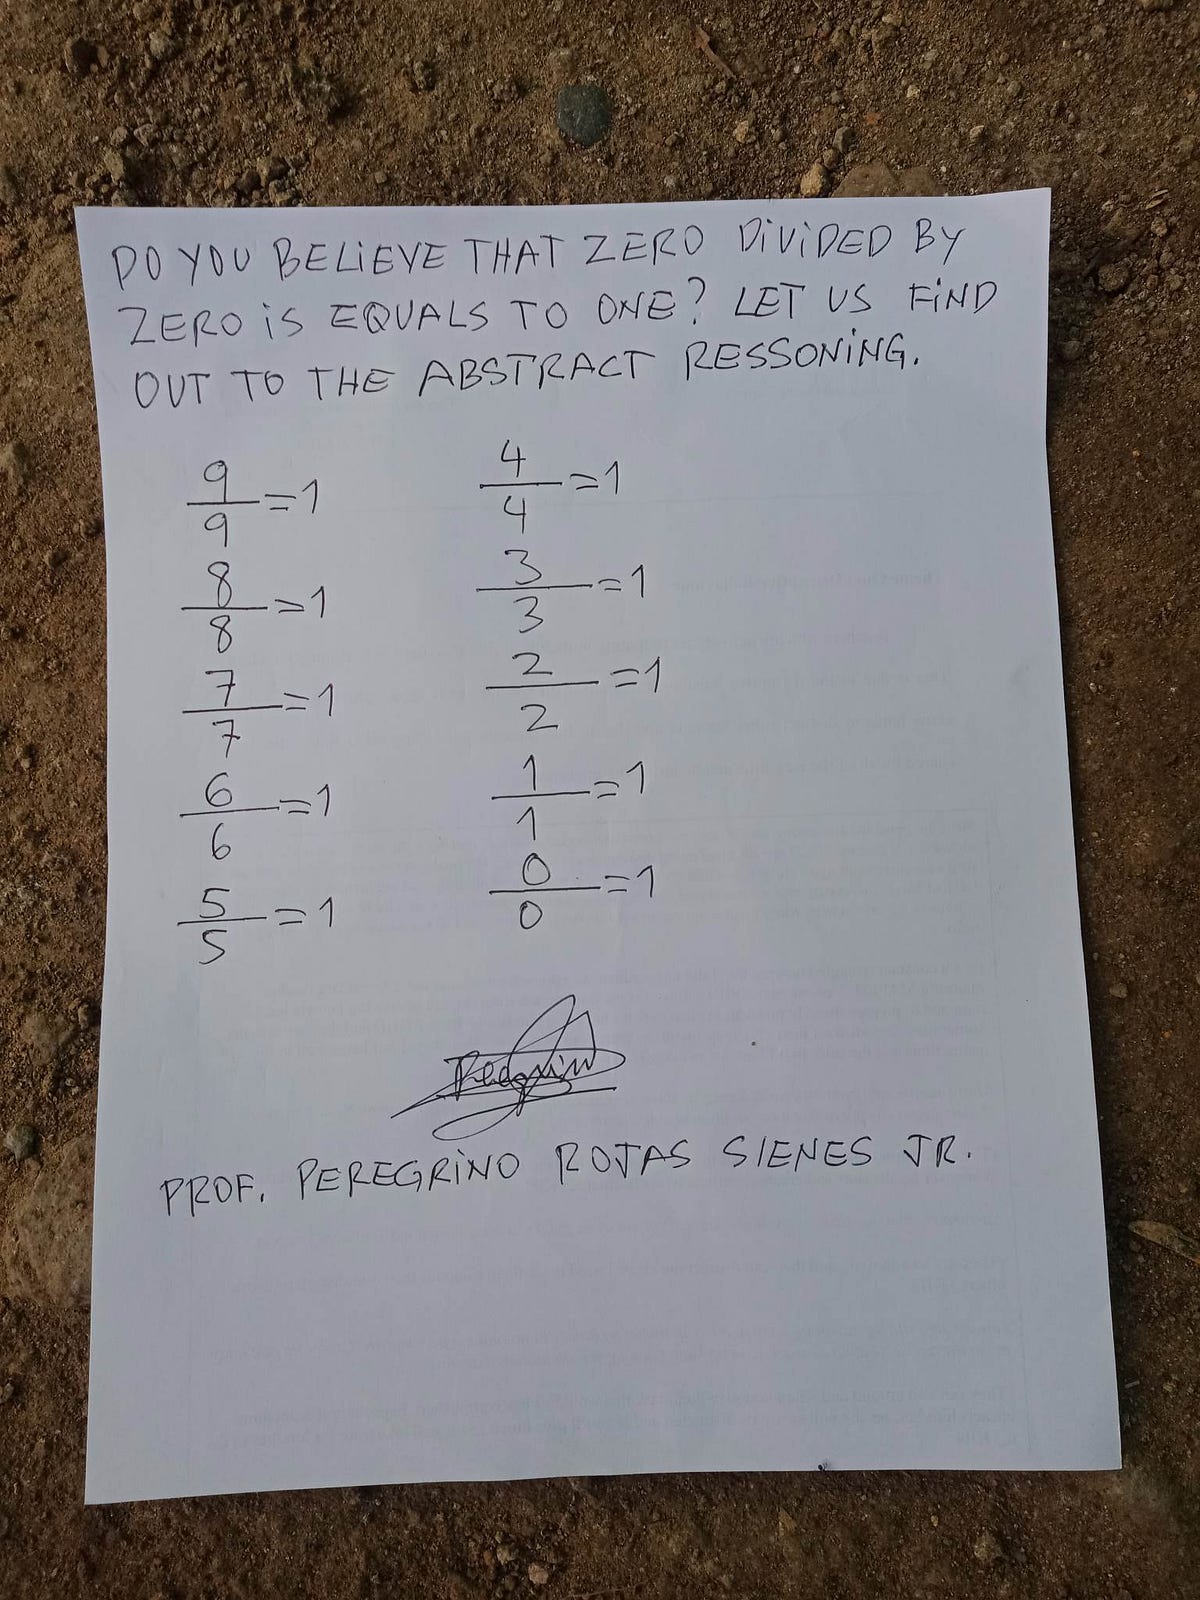 DO YOU BELIEVE THAT ZERO DIVIDED BY
ZERO IS EQUALS TO ONE? LET US FIND
OUT TO THE ABSTRACT RESSONING.
9/9 = 1
8/8 = 1
7/7 = 1
6/6 = 1
5/5 = 1
4/4 = 1
3/3 = 1
2/2 = 1
1/1 = 1
0/0 = 1
PROF. PEREGRINO ROJAS SIENES JR.